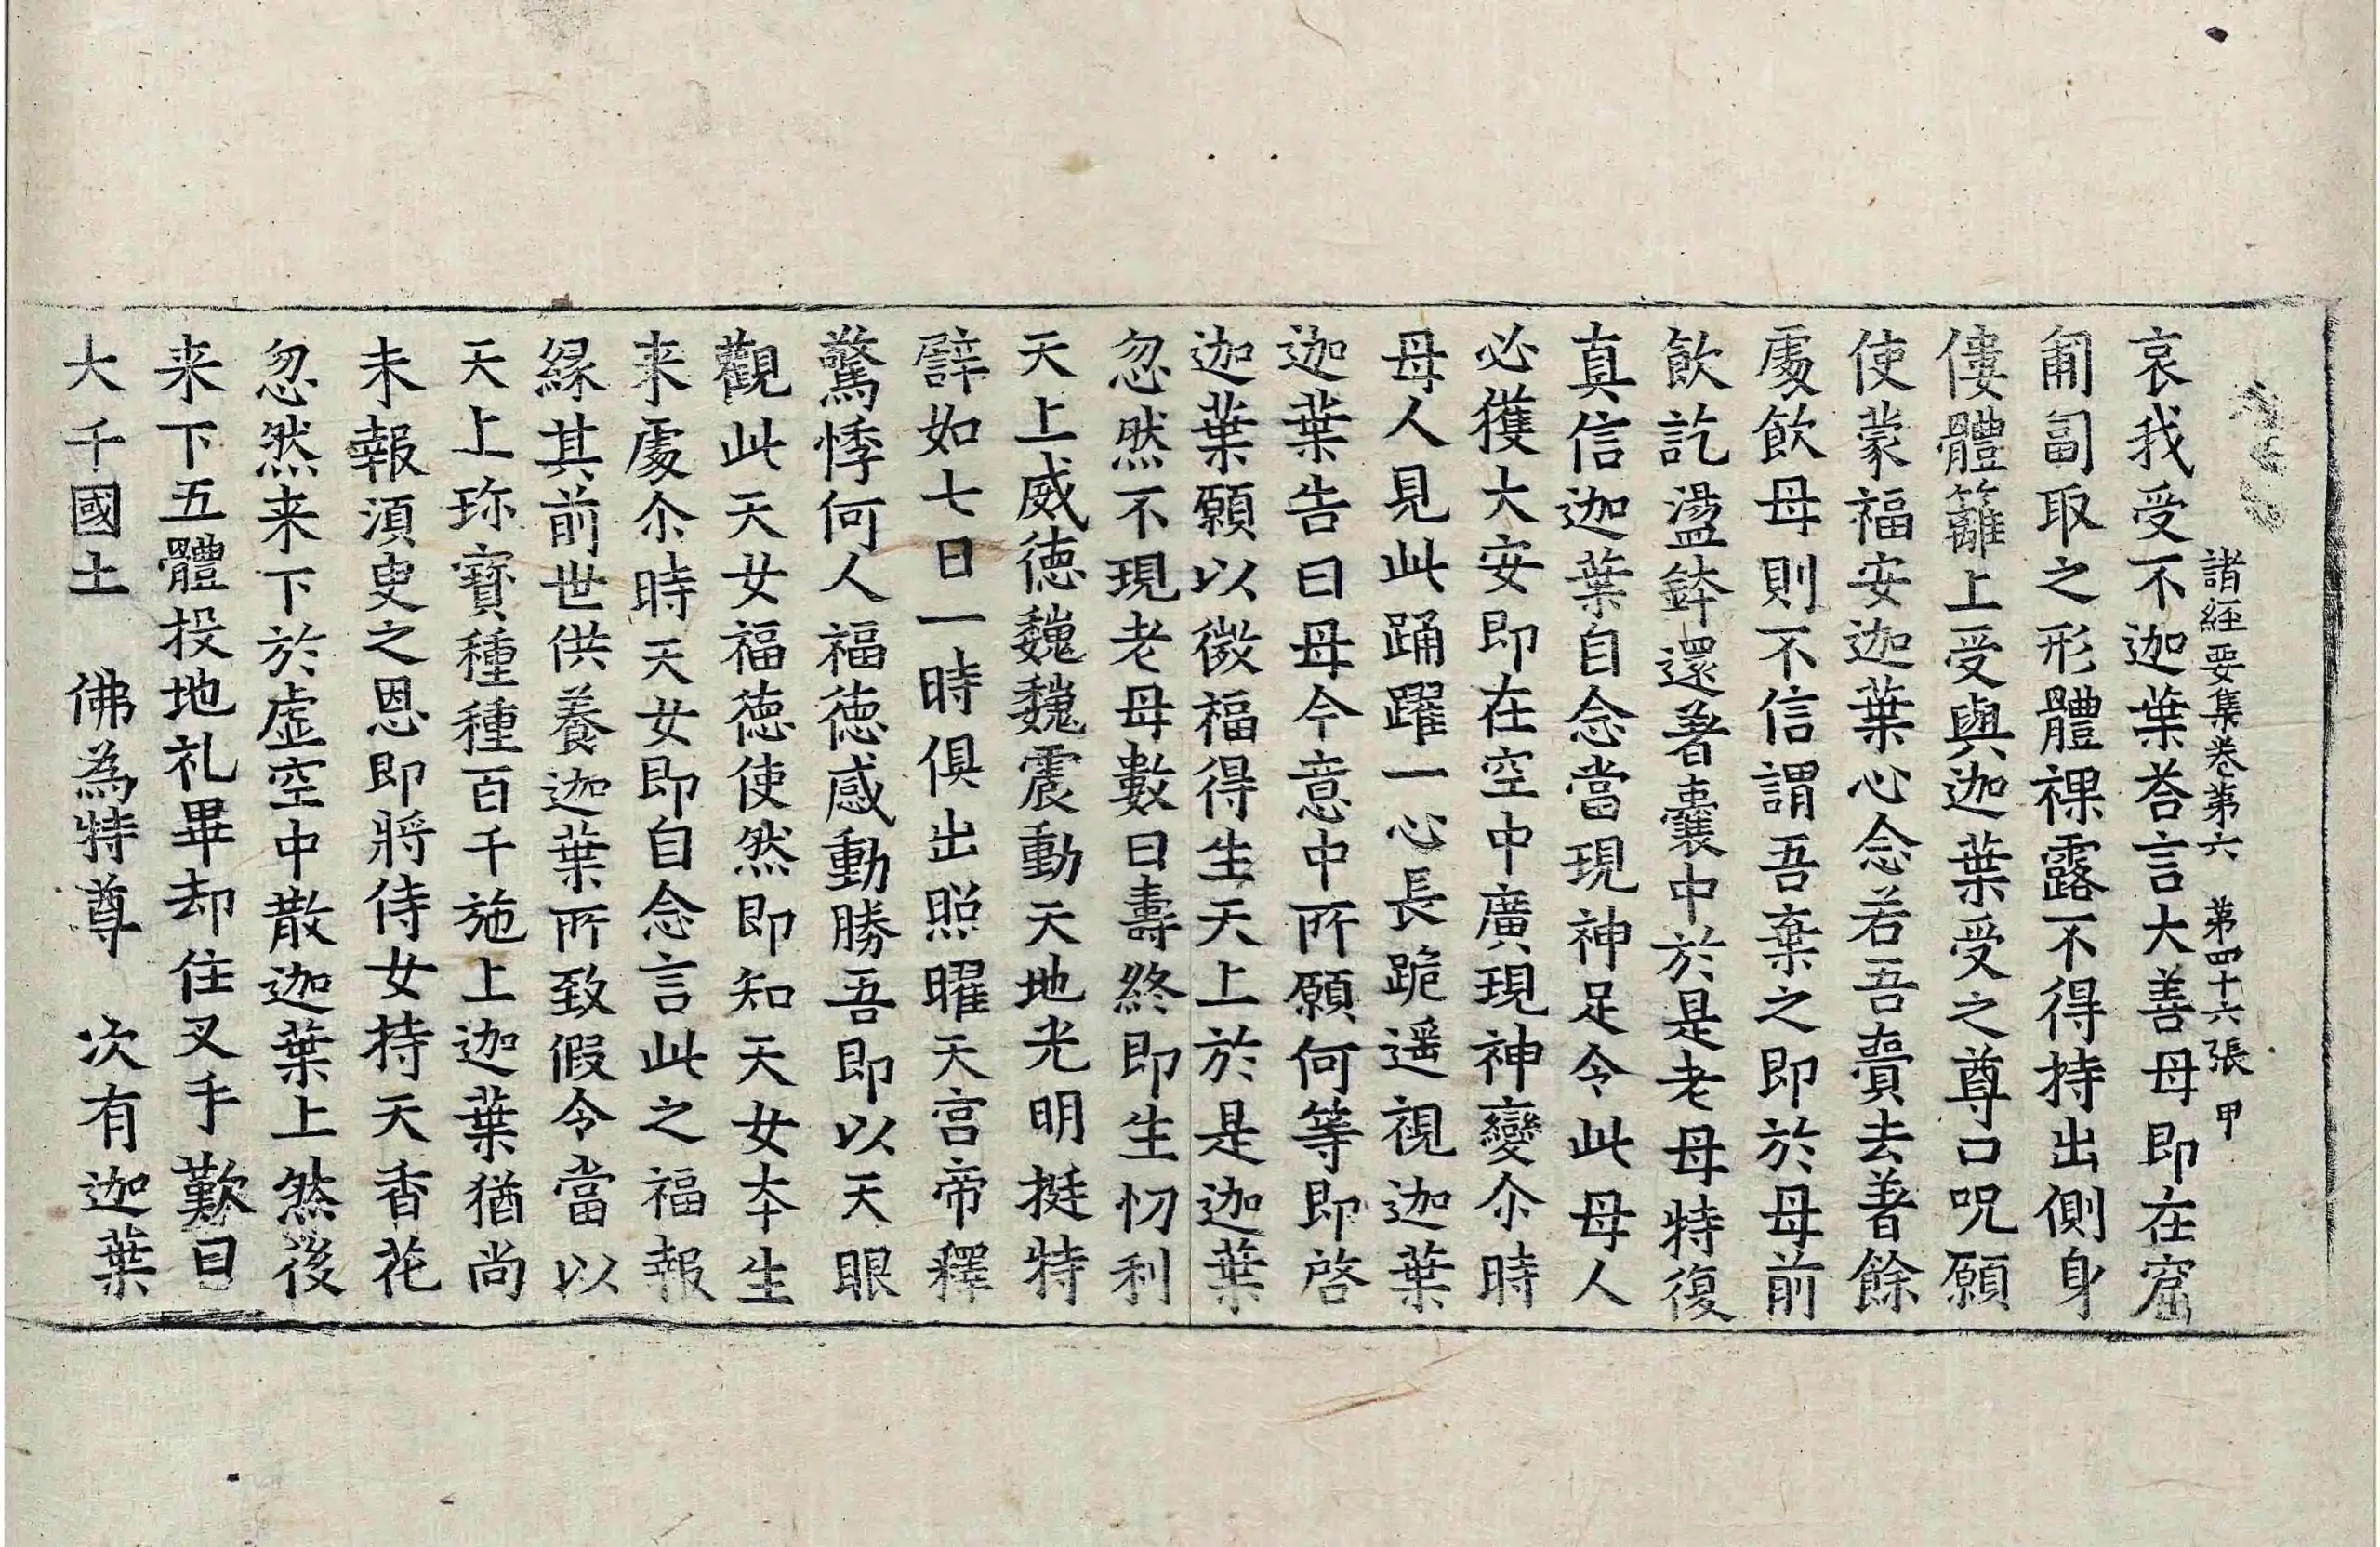 諸經要集卷第六　第四十六張　甲
哀我受不迦葉荅言大善母即在窟
匍匐取之形體裸露不得持出側身
僂體籬上受與迦葉受之尊口呪願
使蒙福安迦葉心念若吾賷去著餘
處飲母則不信謂吾棄之即於母前
飲訖盪鉢還著囊中於是老母特復
真信迦葉自念當現神足令此母人
必獲大安即在空中廣現神變尒時
母人見此踊躍一心長跪遥視迦葉
迦葉告曰母今意中所願何等即啓
迦葉願以微福得生天上於是迦葉
忽然不現老母數日壽終即生忉利
天上威徳巍巍震動天地光明挺特
譬如七日一時俱出照曜天宫帝釋
驚悸何人福徳感動勝吾即以天眼
觀此天女福徳使然即知天女夲生
来處尒時天女即自念言此之福報
緣其前世供養迦葉所致假令當以
天上珎寳種種百千施上迦葉猶尚
未報湏臾之恩即將侍女持天香花
忽然来下於虚空中散迦葉上然後
来下五體投地礼畢却住叉手歎曰
大千國土　佛為特尊　次有迦葉